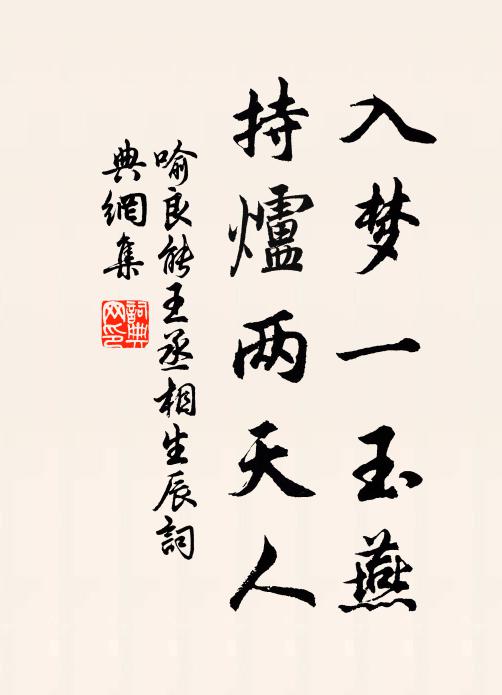 入梦一玉燕
持爐两天人
喻良能王丞相生辰詞
典網集
詞典网印